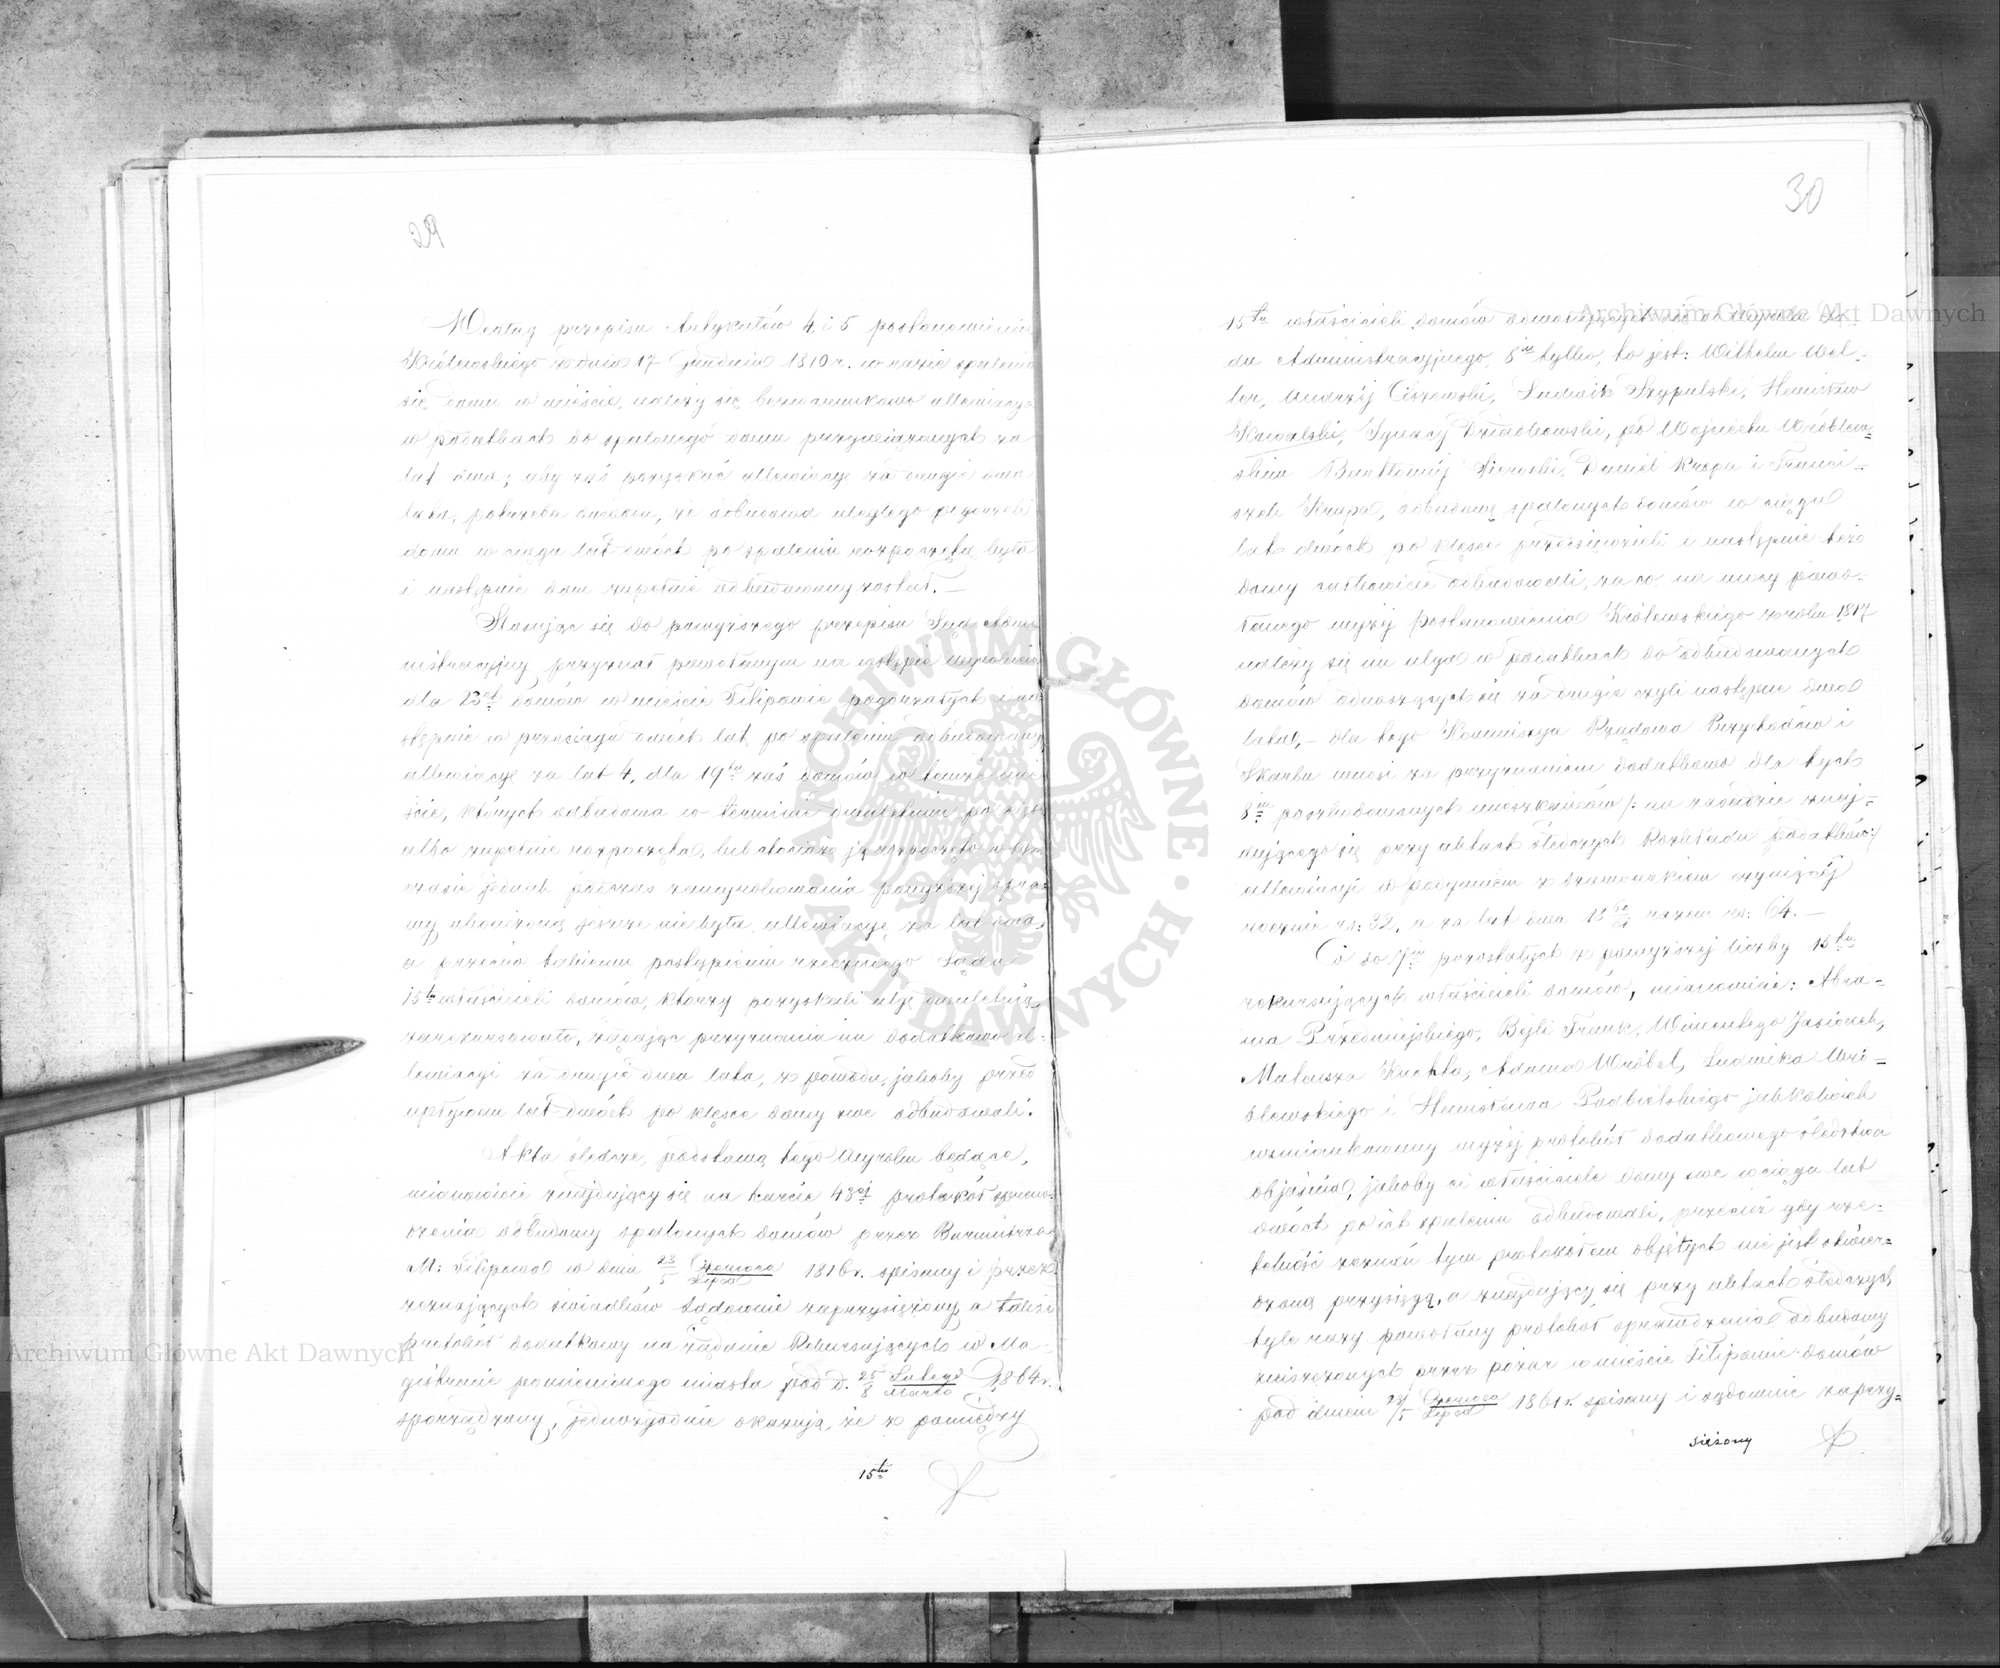 29
Według przepisu Artykułów 4 i 5 postanowienia
Królewskiego z dnia 17 Grudnia 1810 r. w razie spalenia
się domu w mieście, należy się bezwarunkowo allewiacya
w podatkach do spalonego domu przywiązanych za
lat dwa; aby zaś pozyskać allewiacyę za drugie dwa
lata, potrzeba dowodu, że odbudowa uległego pogorzeli
domu w ciągu lat dwóch po spaleniu rozpoczętą była
i następnie dom zupełnie odbudowany został. —
Stosując się do powyższego przepisu Sąd Admi
nistracyjny przyznał powołanym na wstępie Wyrokiem
dla 23ch domów w mieście Filipowie pogorzałych i na
stępnie w przeciągu dwóch lat po spaleniu odbudowanych
allewiacyę za lat 4, dla 19tu zaś domów w temże mie
ście, których odbudowa w terminie dwuletnim po
albo zupełnie rozpoczęta, lub chociaż ją rozpoczęto w tym
czasie jednak podczas zawyrokowania powyższej spra
wy ukończoną jeszcze nie była, allewiacyę za lat dwa,
a przeciw takiemu postąpieniu rzeczonego Sądu
15tu właścicieli domów, którzy pozyskali ulgę dwuletnią,
zarekursowało, żądając przyznania im dodatkowo al-
lewiacyi za drugie dwa lata, z powodu, jakoby przed
upływem lat dwóch po klęsce domy swe odbudowali.
Akta śledcze, podstawą tego Wyroku będące,
mianowicie znajdujący się na karcie 48ej protokół spraw-
dzenia odbudowy spalonych domów przez Burmistrza
M: Filipowa w dniu 23/5 Czerwca/Lipca 1816 r. spisany i przez
zeznających świadków sądownie zaprzysiężony, a także
protokół dodatkowy na żądanie Rekursujących w Ma-
gistracie pomienionego miasta pod d. 25/8 Lutego/Marca 1864 r.
sporządzony, jednozgodnie okazują, że z pomiędzy
15tu
30
15tu właścicieli domów odwołujących się od wyroku Są-
du Administracyjnego, 8iu tylko, to jest: Wilhelm Wol-
ter, Andrzej Ciszewski, Ludwik Szypulski, Henryków
Kowalski, Ignacy Dziadkowski, po Wojciechu Wróblew-
skim Bartłomiej Sieracki, Daniel Krupa i Franci-
szek Krupa, odbudowę spalonych domów w ciągu
lat dwóch po klęsce przedsięwzieli i następnie też
domy całkowicie odbudowali, za co na mocy powo-
łanego wyżej postanowienia Królewskiego z roku 1817
należy się im ulga w podatkach do odbudowanych
domów odnoszących się za drugie czyli następne dwa
lata, – dla tego Kommissya Rządowa Przychodów i
Skarbu wnosi za przyznaniem dodatkowo dla tych
8iu poszkodowanych mieszkańców /: na zasadzie znaj-
dującego się przy aktach śledczych Rozkładu podatków:/
allewiacyi w podymnem z szarwarkiem czyniącej
rocznie rs: 32, a za lat dwa 18 60/61 razem rs: 64. —
Co do 7iu pozostałych z powyższej liczby 15tu
rekursujących właścicieli domów, mianowicie: Abra-
ma Przedmiejskiego, Bejli Frank, Wincentego Jasionek,
Mateusza Kuchta, Adama Wróbel, Ludwika Wró-
blewskiego i Stanisława Podbielskiego jakkolwiek
wzmiankowany wyżej protokół dodatkowego śledztwa
objaśnia, jakoby ci właściciele domy swe w ciągu lat
dwóch po ich spaleniu odbudowali, przecież gdy rze-
telność zeznań tym protokółem objętych nie jest stwier-
dzoną przysięgą, a znajdujący się przy aktach śledczych
tyle razy powołany protokół sprawdzenia odbudowy
zniszczonych przez pożar w mieście Filipowie domów
pod dniem 23/5 Czerwca/Lipca 1861 r. spisany i sądownie zaprzy-
siężony
Archiwum Główne Akt Dawnych
Archiwum Główne Akt Dawnych
ARCHIWUM GŁÓWNE AKT DAWNYCH